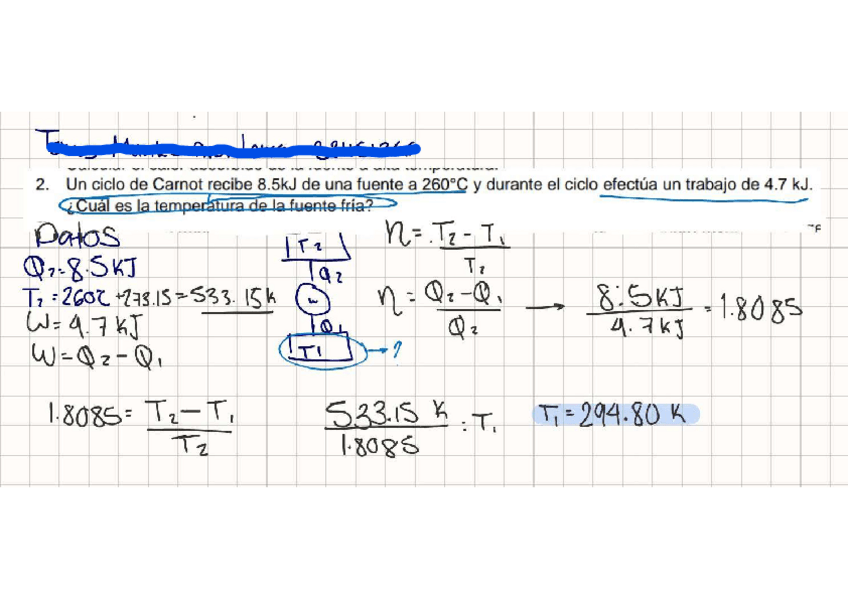 2. Un ciclo de Carnot recibe 8.5kJ de una fuente a 260°C y durante el ciclo efectúa un trabajo de 4.7 kJ.
¿Cuál es la temperatura de la fuente fría?
Datos
Q₂=8.5KJ
T₂=260°C+273.15=533.15K
W=4.7KJ
W=Q₂-Q₁
T₂
Q₂
w
Q₁
T1 → ?
η=.T₂-T₁/T₂
η=Q₂-Q₁/Q₂ → 8.5KJ/4.7KJ=1.8085
1.8085=T₂-T₁/T₂
533.15 K/1.8085 : T₁
T₁=294.80 K